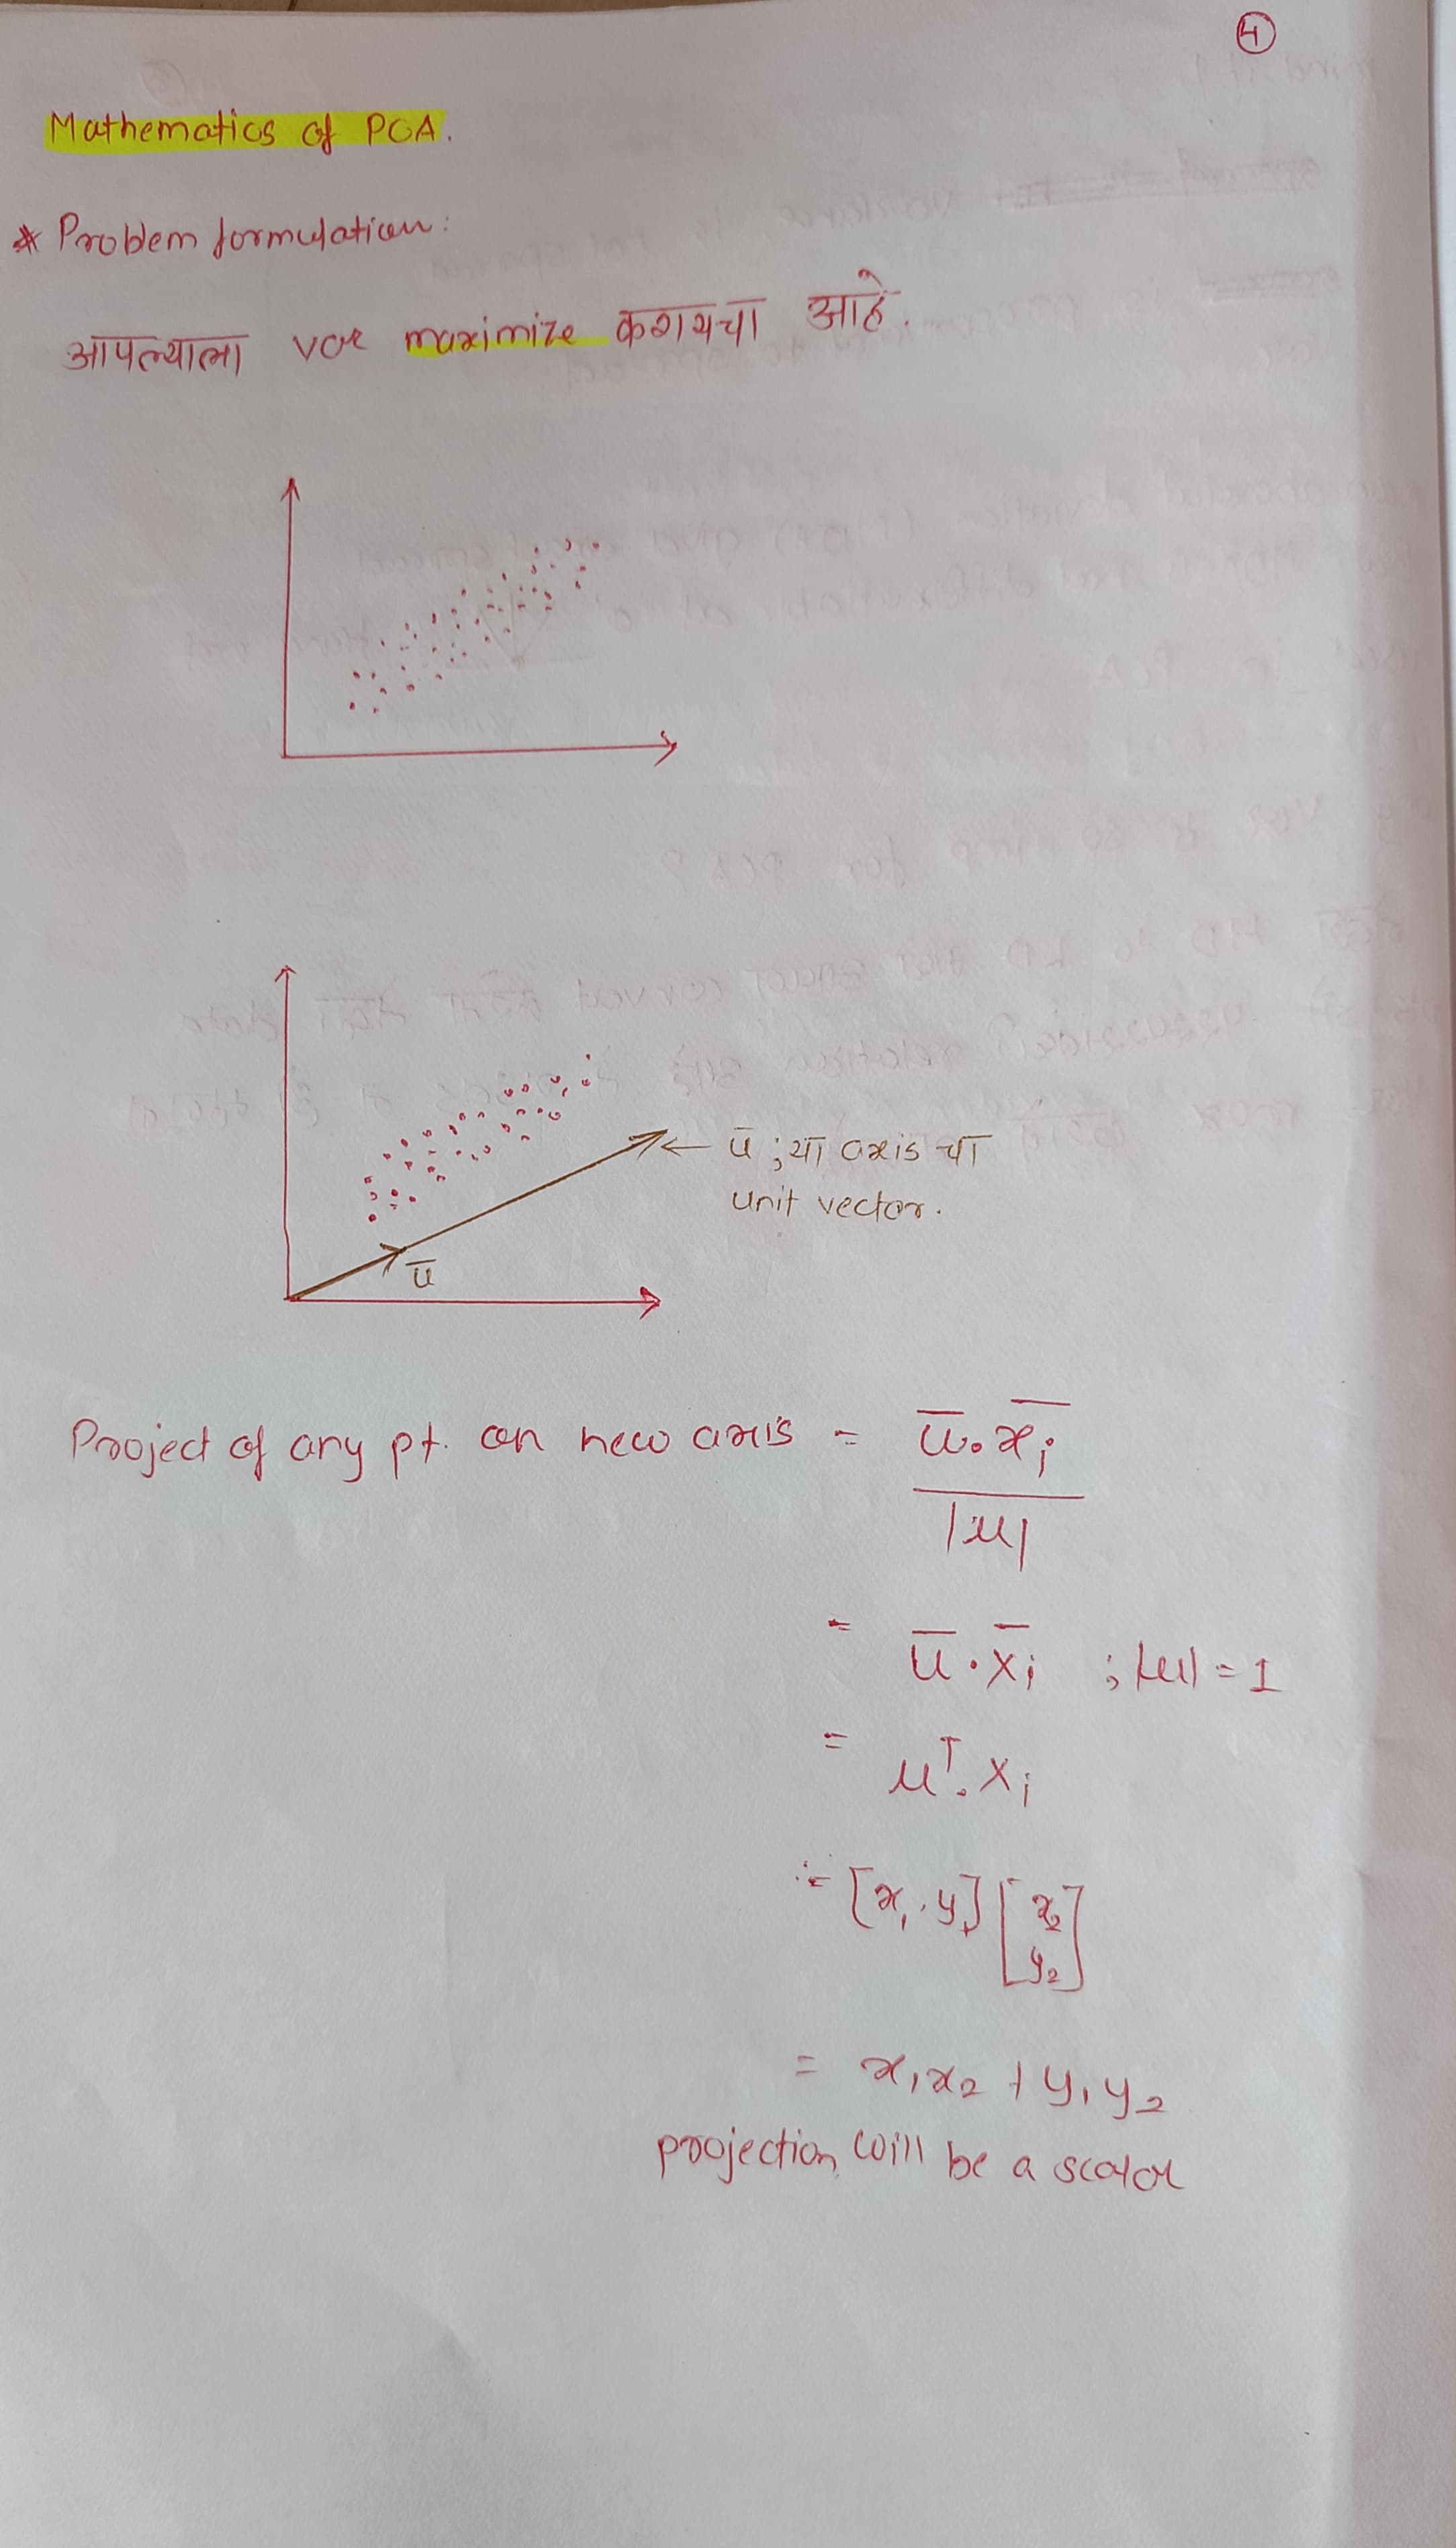 4
Mathematics of PCA.
* Problem formulation:
आपल्याला var maximize करायचा आहे.
← ū ; या axis चा
unit vector.
ū
Project of any pt. on new axis = ū.x̄i
|u|
= ū.x̄i ; |u| = 1
= uᵀ. xi
= [x1, y1] [x2
y2]
= x1x2 + y1y2
projection will be a scalar